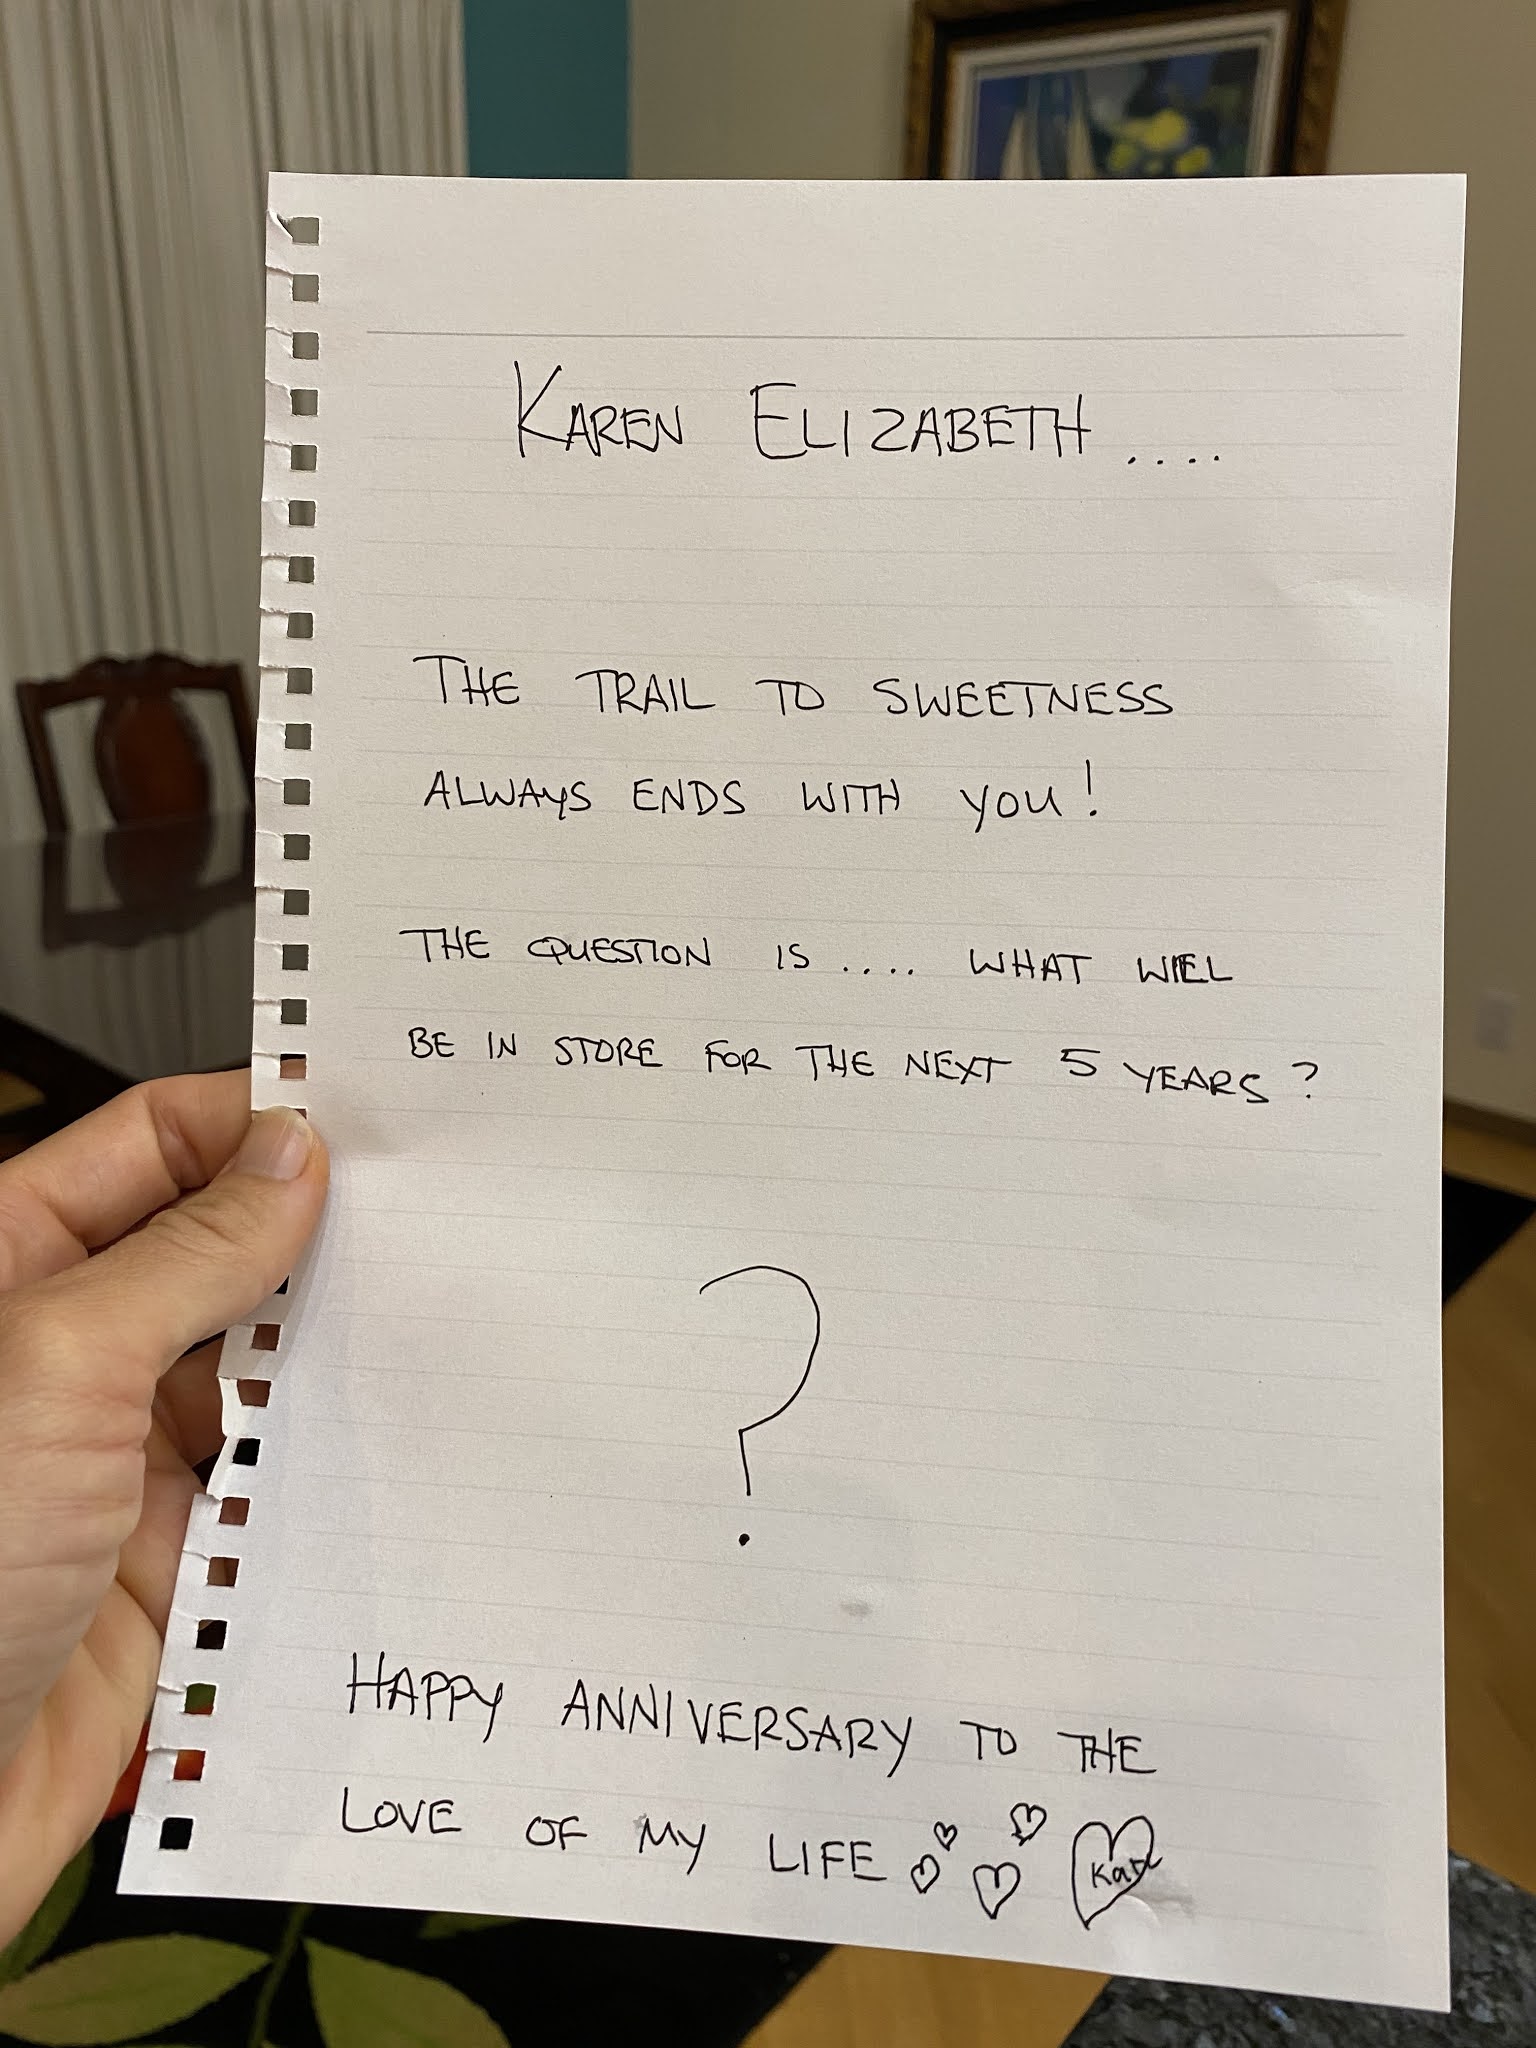 KAREN ELIZABETH....
THE TRAIL TO SWEETNESS
ALWAYS ENDS WITH YOU!
THE QUESTION IS .... WHAT WILL
BE IN STORE FOR THE NEXT 5 YEARS?
?
HAPPY ANNIVERSARY TO THE
LOVE OF MY LIFE